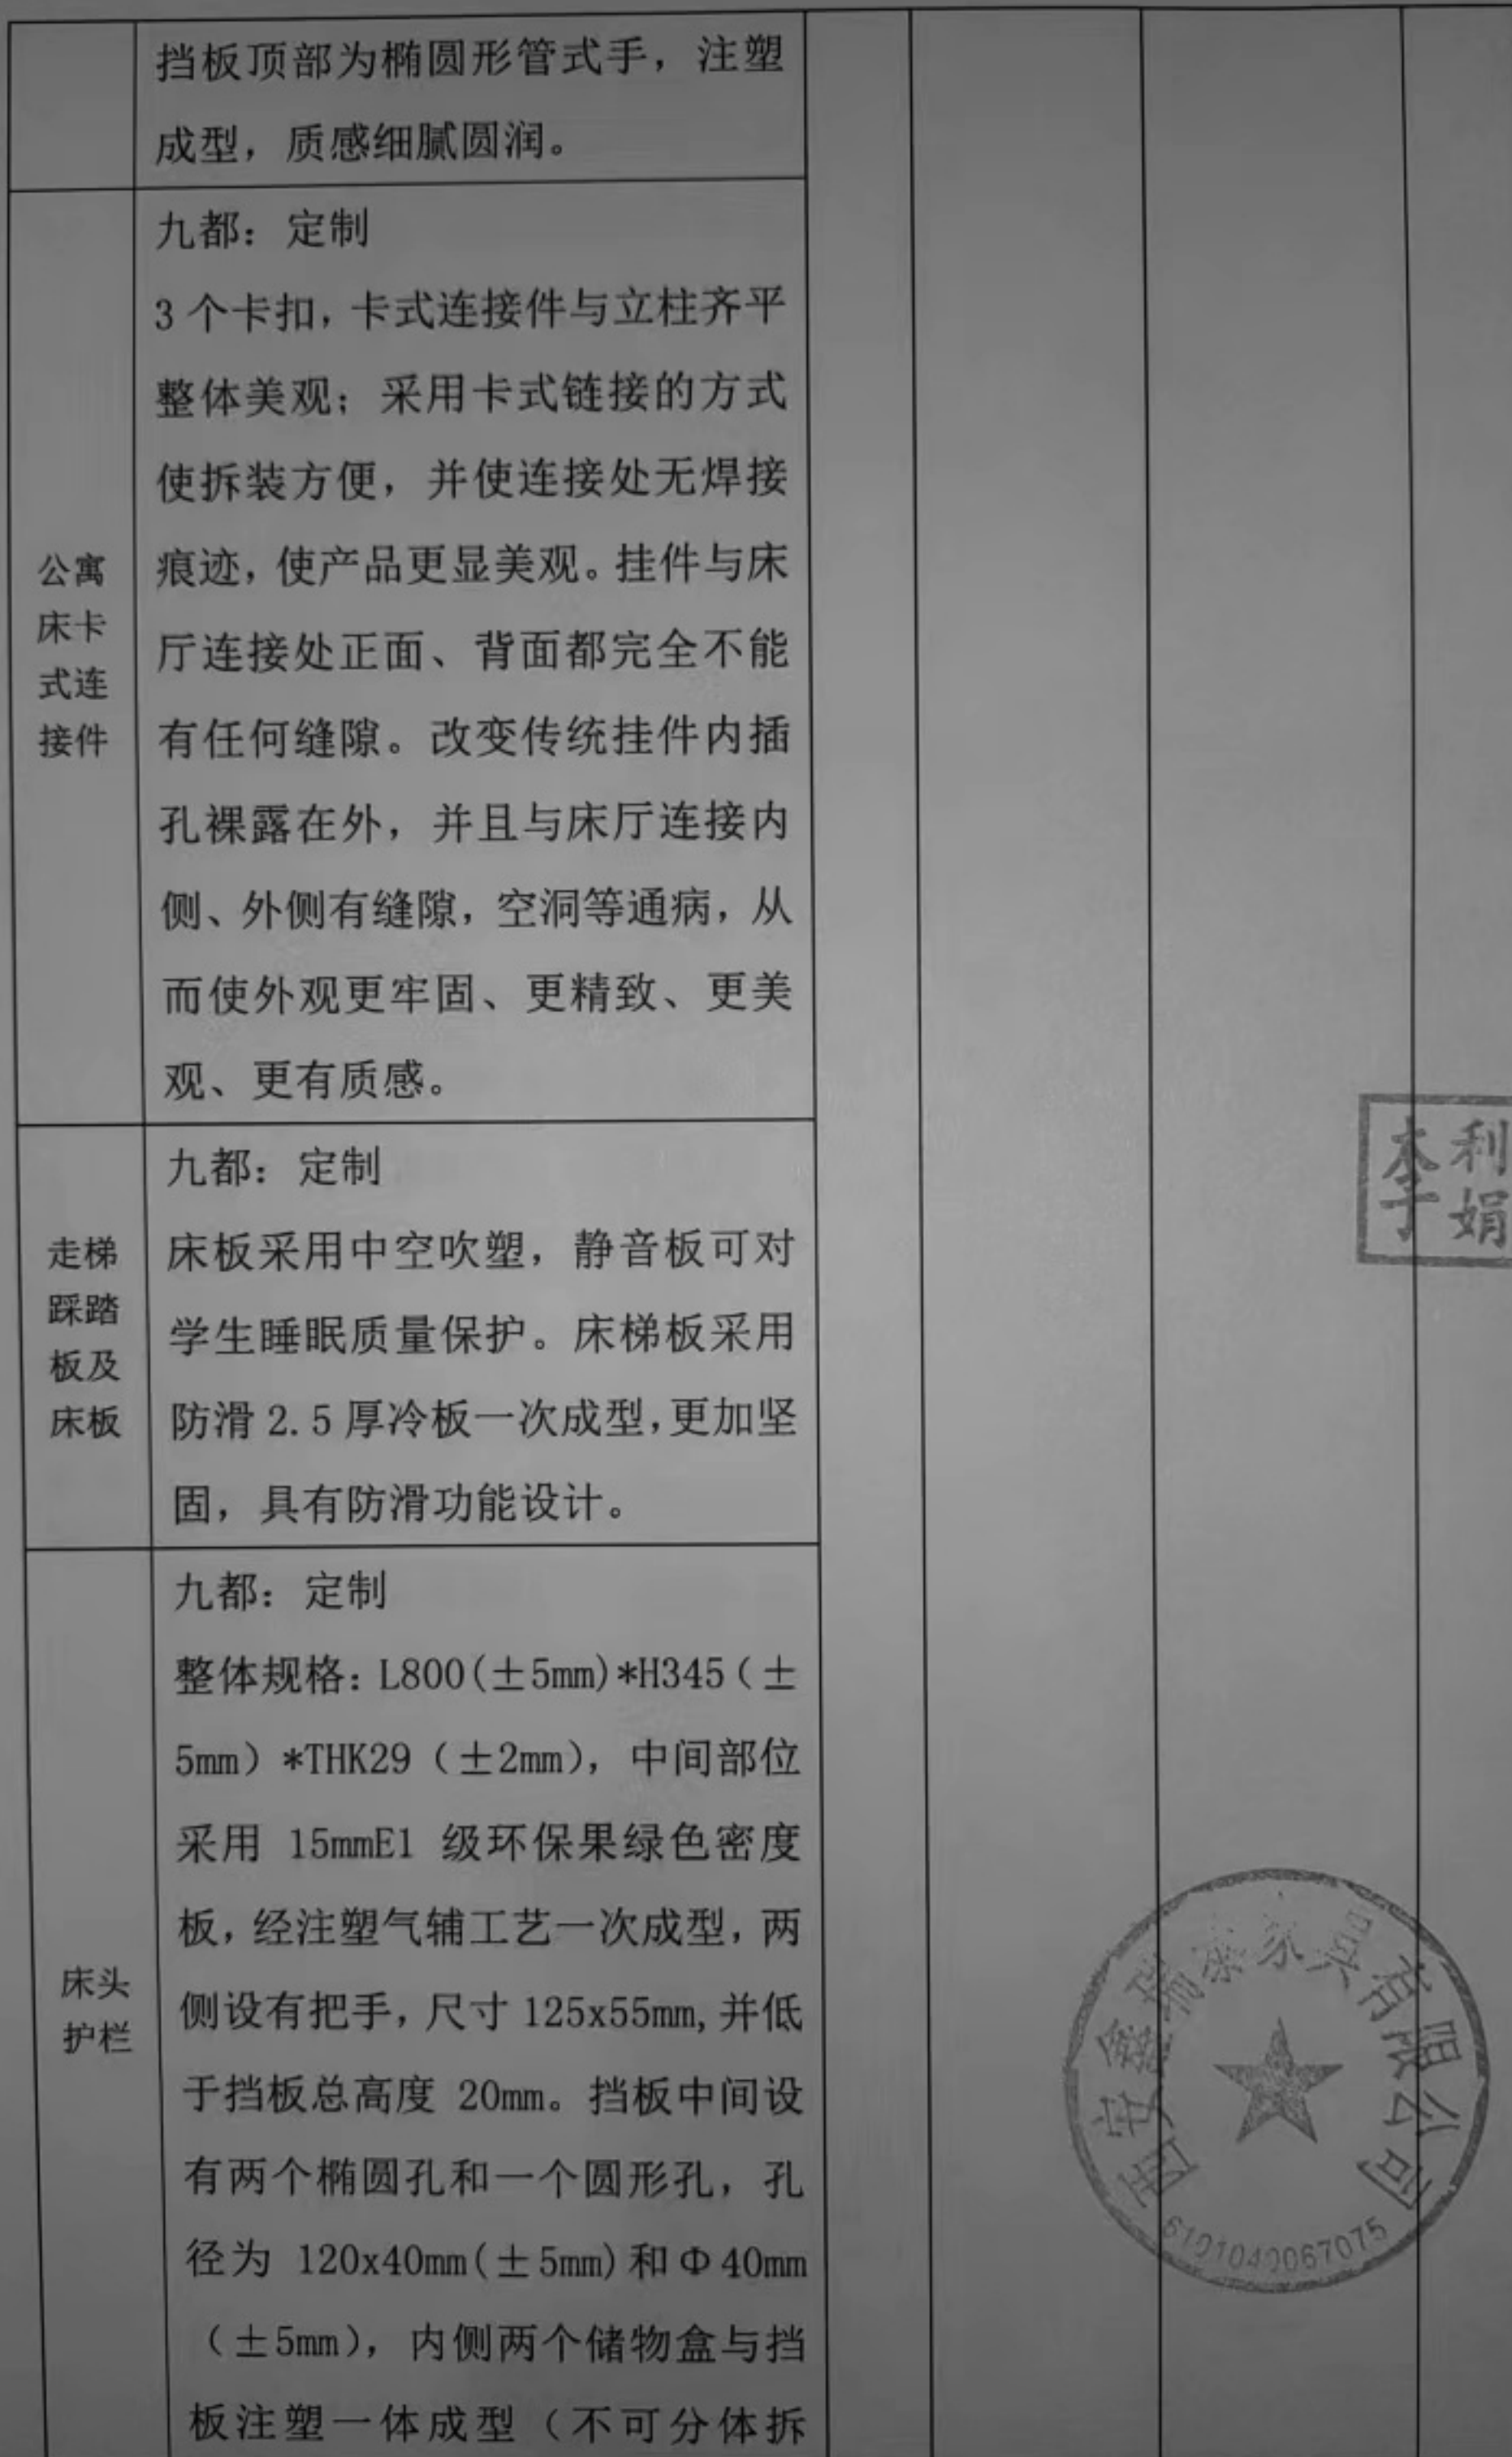 挡板顶部为椭圆形管式手，注塑
成型，质感细腻圆润。
公寓
床卡
式连
接件
九都：定制
3 个卡扣，卡式连接件与立柱齐平
整体美观；采用卡式链接的方式
使拆装方便，并使连接处无焊接
痕迹，使产品更显美观。挂件与床
厅连接处正面、背面都完全不能
有任何缝隙。改变传统挂件内插
孔裸露在外，并且与床厅连接内
侧、外侧有缝隙，空洞等通病，从
而使外观更牢固、更精致、更美
观、更有质感。
走梯
踩踏
板及
床板
九都：定制
床板采用中空吹塑，静音板可对
学生睡眠质量保护。床梯板采用
防滑 2.5 厚冷板一次成型，更加坚
固，具有防滑功能设计。
李利娟
床头
护栏
九都：定制
整体规格：L800(±5mm)*H345（±
5mm）*THK29（±2mm），中间部位
采用 15mmE1 级环保果绿色密度
板，经注塑气辅工艺一次成型，两
侧设有把手，尺寸 125x55mm,并低
于挡板总高度 20mm。挡板中间设
有两个椭圆孔和一个圆形孔，孔
径为 120x40mm(±5mm)和Φ40mm
（±5mm），内侧两个储物盒与挡
板注塑一体成型（不可分体拆
西安鑫瑞泰家具有限公司
6101040067075